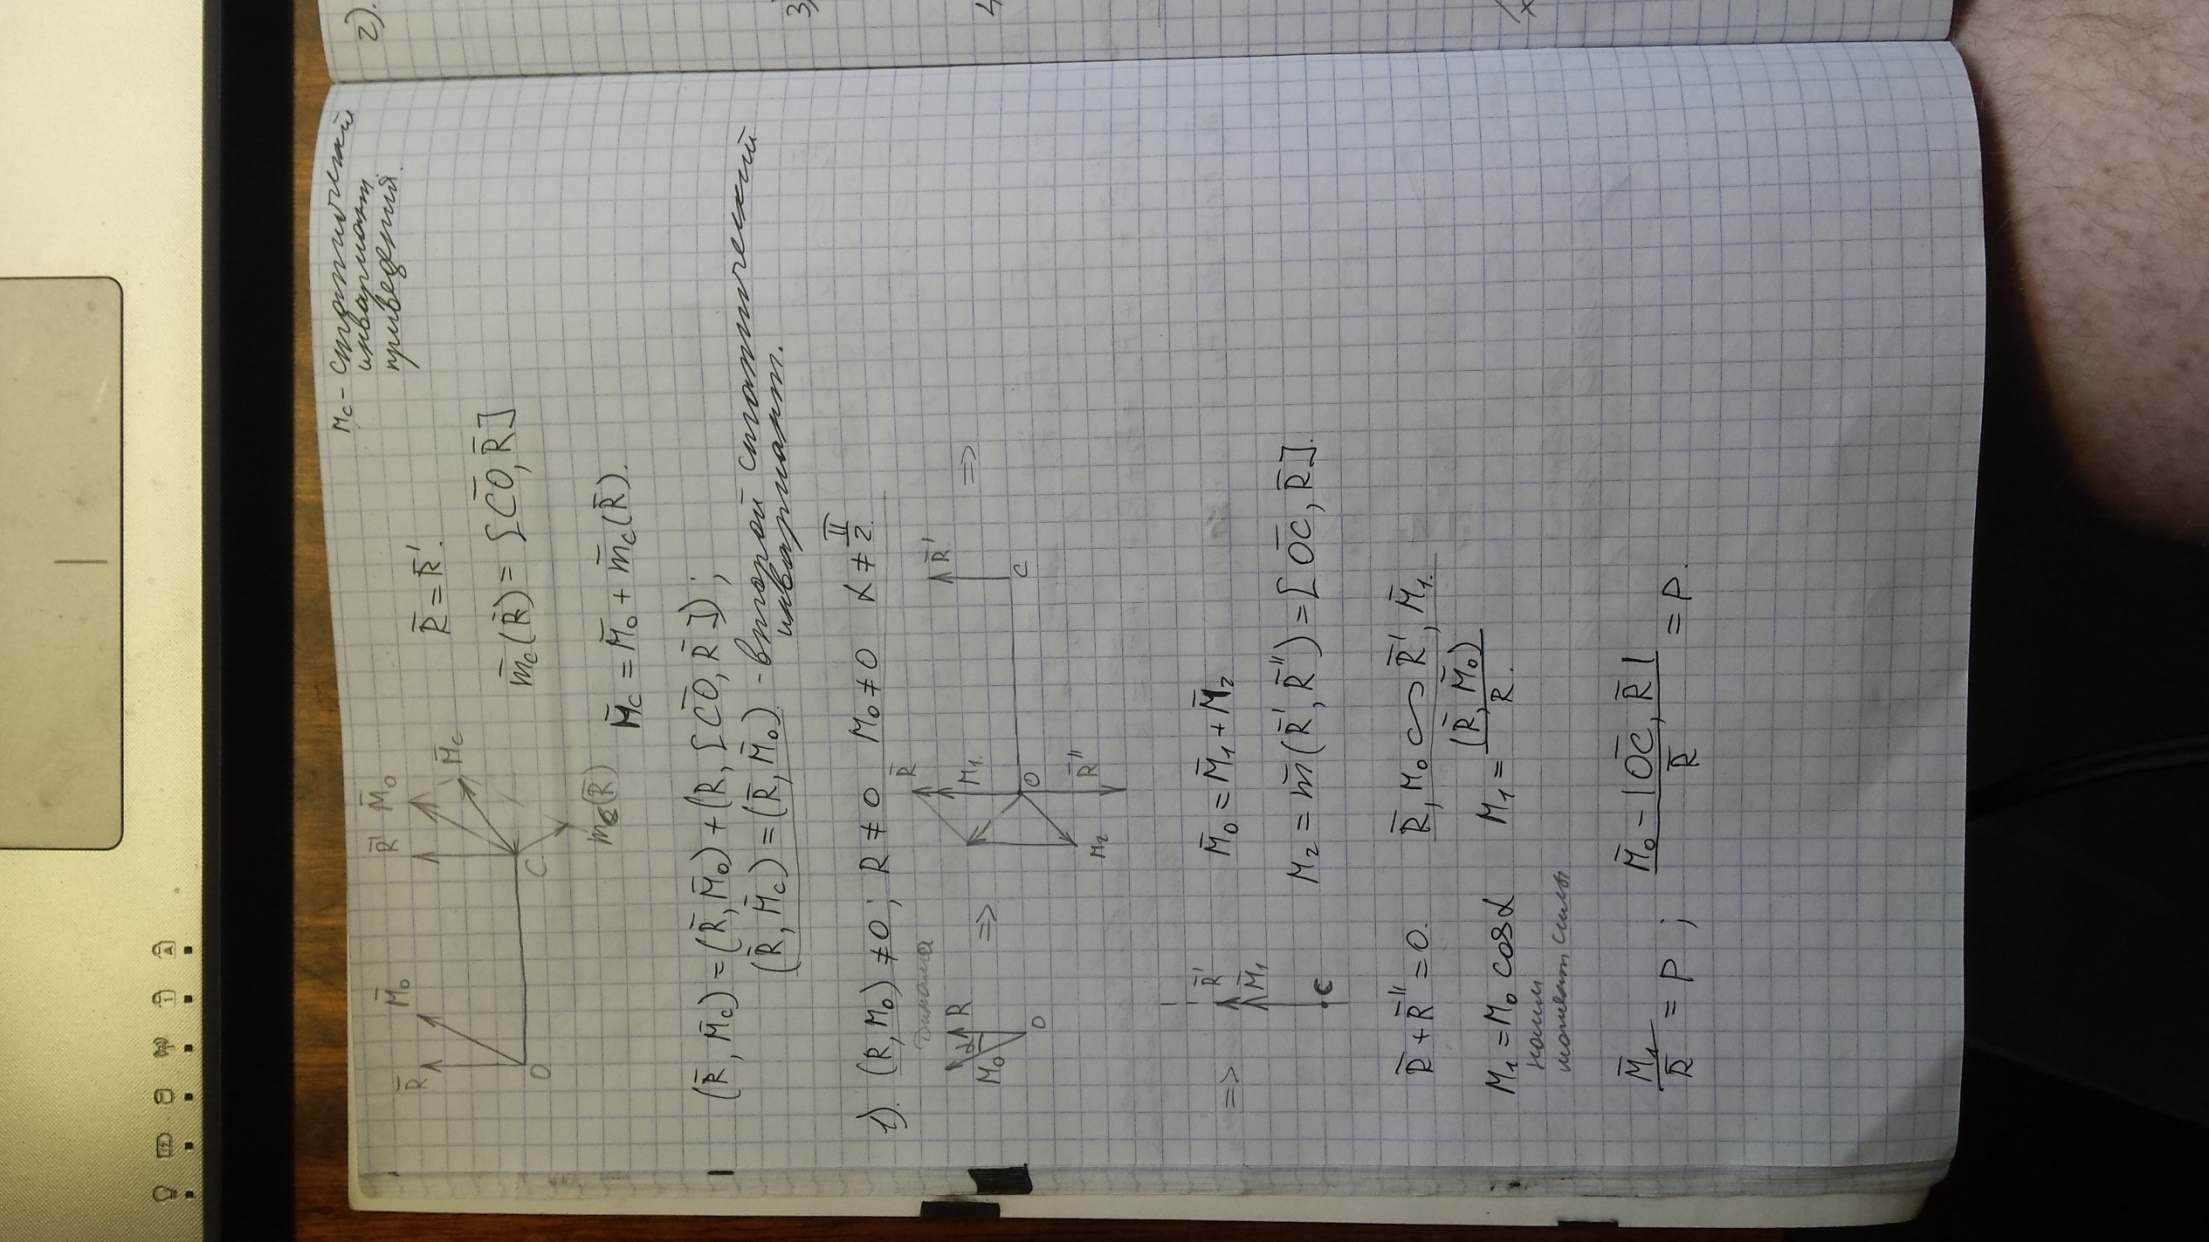 M_c - статический
инвариант
приведения.
R̄ R̄' M̄₀
M̄₀ M̄_c
O C
R̄ = R̄'.
m̄_c(R̄) = [C̄Ō, R̄]
m̄_c(R̄)
M̄_c = M̄₀ + m̄_c(R̄).
(R̄, M̄_c) = (R̄, M̄₀) + (R, [C̄Ō, R̄]);
(R̄, M̄_c) = (R̄, M̄₀) - второй статический
инвариант.
1). (R, M₀) ≠ 0; R ≠ 0 M₀ ≠ 0 α ≠ π/2.
динама
M₀ α R O
=>
R̄ M₁ O R̄'' M₂
R̄' C
=>
=> R̄' M̄₁ C
M̄₀ = M̄₁ + M̄₂
M₂ = m̄(R̄', R̄'') = [ŌC̄, R̄].
R̄ + R̄'' = 0.
R̄, M₀ ∽ R̄', M̄₁.
M₁ = M₀ cos α
M₁ = (R̄, M̄₀)/R.
момент силы
M̄₁/R̄ = P;
M̄₀ - |ŌC̄, R̄|/R̄ = P.
2).
3)
4
x